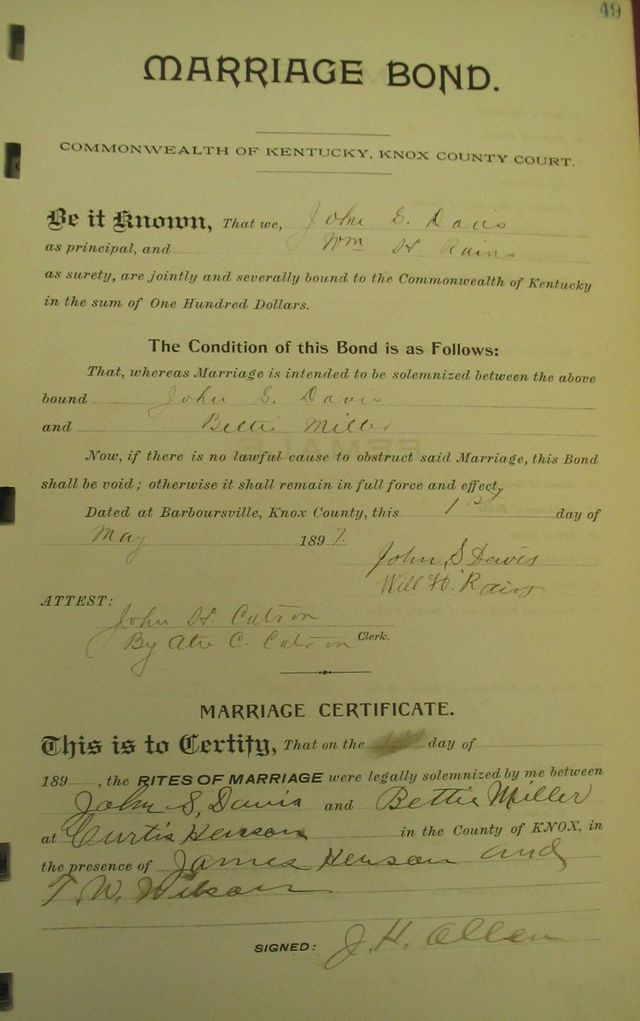 49
MARRIAGE BOND.
COMMONWEALTH OF KENTUCKY, KNOX COUNTY COURT.
Be it Known, That we, John S. Davis
as principal, and Wm H. Rains
as surety, are jointly and severally bound to the Commonwealth of Kentucky
in the sum of One Hundred Dollars.
The Condition of this Bond is as Follows:
That, whereas Marriage is intended to be solemnized between the above
bound John S. Davis
and Bettie Miller
Now, if there is no lawful cause to obstruct said Marriage, this Bond
shall be void; otherwise it shall remain in full force and effect,
Dated at Barboursville, Knox County, this 1st day of
May 1897.
John S Davis
Will H. Rains
ATTEST:
John H. Catron
By C. Catron Clerk.
MARRIAGE CERTIFICATE.
This is to Certify, That on the day of
189 , the RITES OF MARRIAGE were legally solemnized by me between
John S, Davis and Bettie Miller
at Curtis Henson in the County of KNOX, in
the presence of James Henson and
T. W. Wilson
SIGNED: J. H. Allen